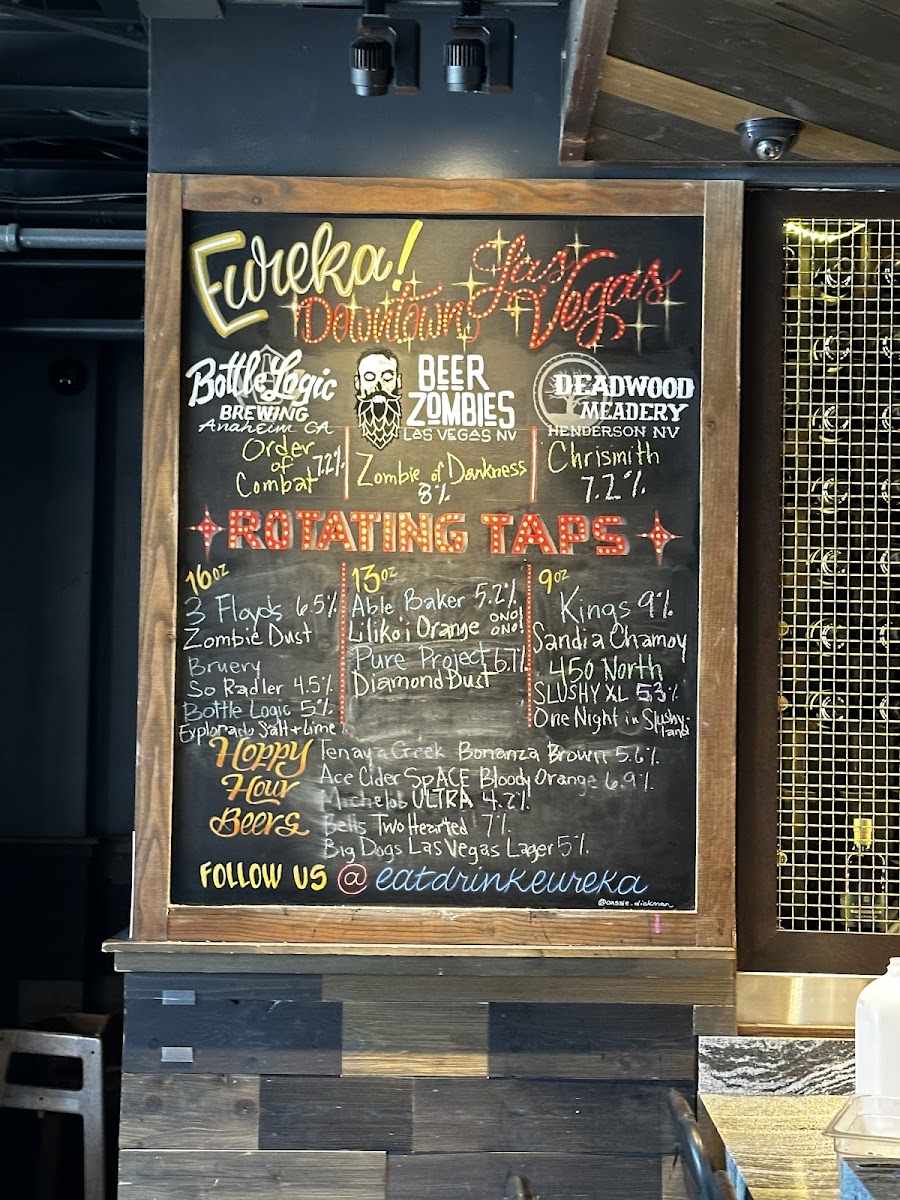 Eureka!
Downtown Las Vegas
Bottle Logic
BREWING
Anaheim CA
Order
of
Combat 7.2%
BEER
ZOMBIES
LAS VEGAS NV
Zombie of Darkness
8%
DEADWOOD
MEADERY
HENDERSON NV
Chrismith
7.2%
ROTATING TAPS
16oz
3 Floyds 6.5%
Zombie Dust
Bruery
So Radler 4.5%
Bottle Logic 5%
Explorado Salt + Lime
13oz
Able Baker 5.2%
Lilikoi Orange ONO! ONO!
Pure Project 6.7%
Diamond Dust
9oz
Kings 9%
Sandia Chamoy
450 North
SLUSHY XL 5.3%
One Night in Slushy-
land
Hoppy
Hour
Beers
Tenaya Creek Bonanza Brown 5.6%
Ace Cider SpACE Bloody Orange 6.9%
Michelob ULTRA 4.2%
Bells Two Hearted 7%
Big Dogs Las Vegas Lager 5%
FOLLOW US @ eatdrinkeureka
@cassie.dickman